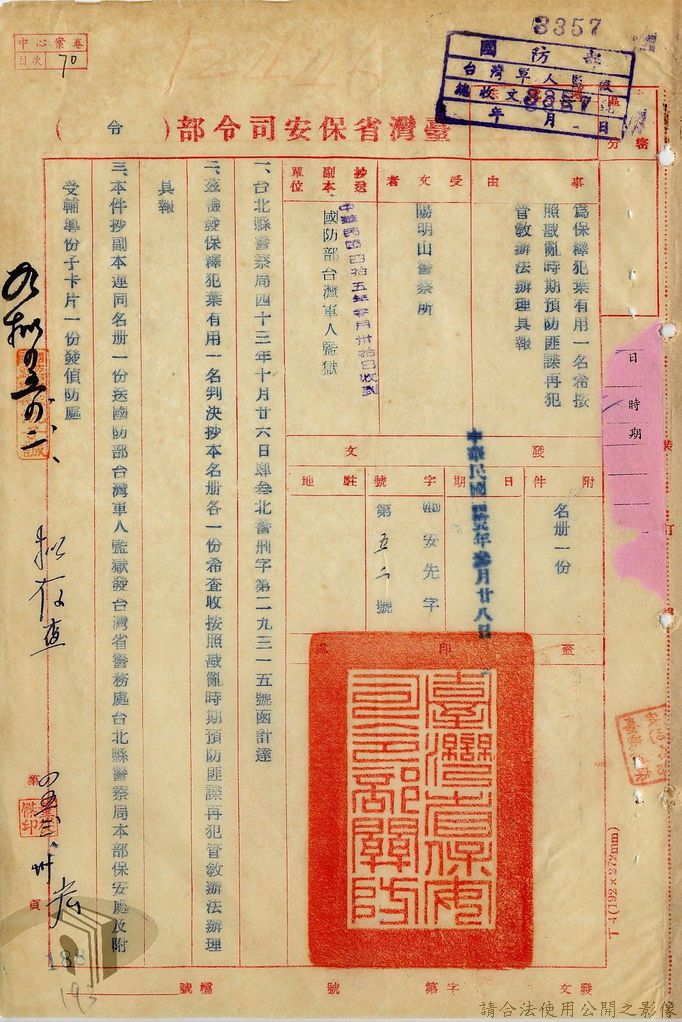 3357
國防部
台灣軍人監獄
總收文 3357
年 月 日
中心案卷
目次 70
臺灣省保安司令部(令)
事由
為保釋犯葉有用一名希按
照戡亂時期預防匪諜再犯
管教辦法辦理具報
受文者
陽明山警察所
抄送副本單位
國防部台灣軍人監獄
發文
附件
名册一份
日期
中華民國肆拾五年參月廿八日
字號
安先字
第五二號
駐地
蓋印處
臺灣省保安司令部關防
一、台北縣警察局四十三年十月廿六日肆叁北警刑字第二九三一五號函計達
二、茲檢發保釋犯葉有用一名判決抄本名册各一份希查收按照戡亂時期預防匪諜再犯管教辦法辦理
具報
三、本件抄副本連同名册一份送國防部台灣軍人監獄發台灣省警務處台北縣警察局本部保安處及附
受輔導份子卡片一份發偵防處
擬存查
日
時期
裝
訂
第
頁
188
193
T 4(192×272mm)
發文 字第 號 檔號
請合法使用公開之影像